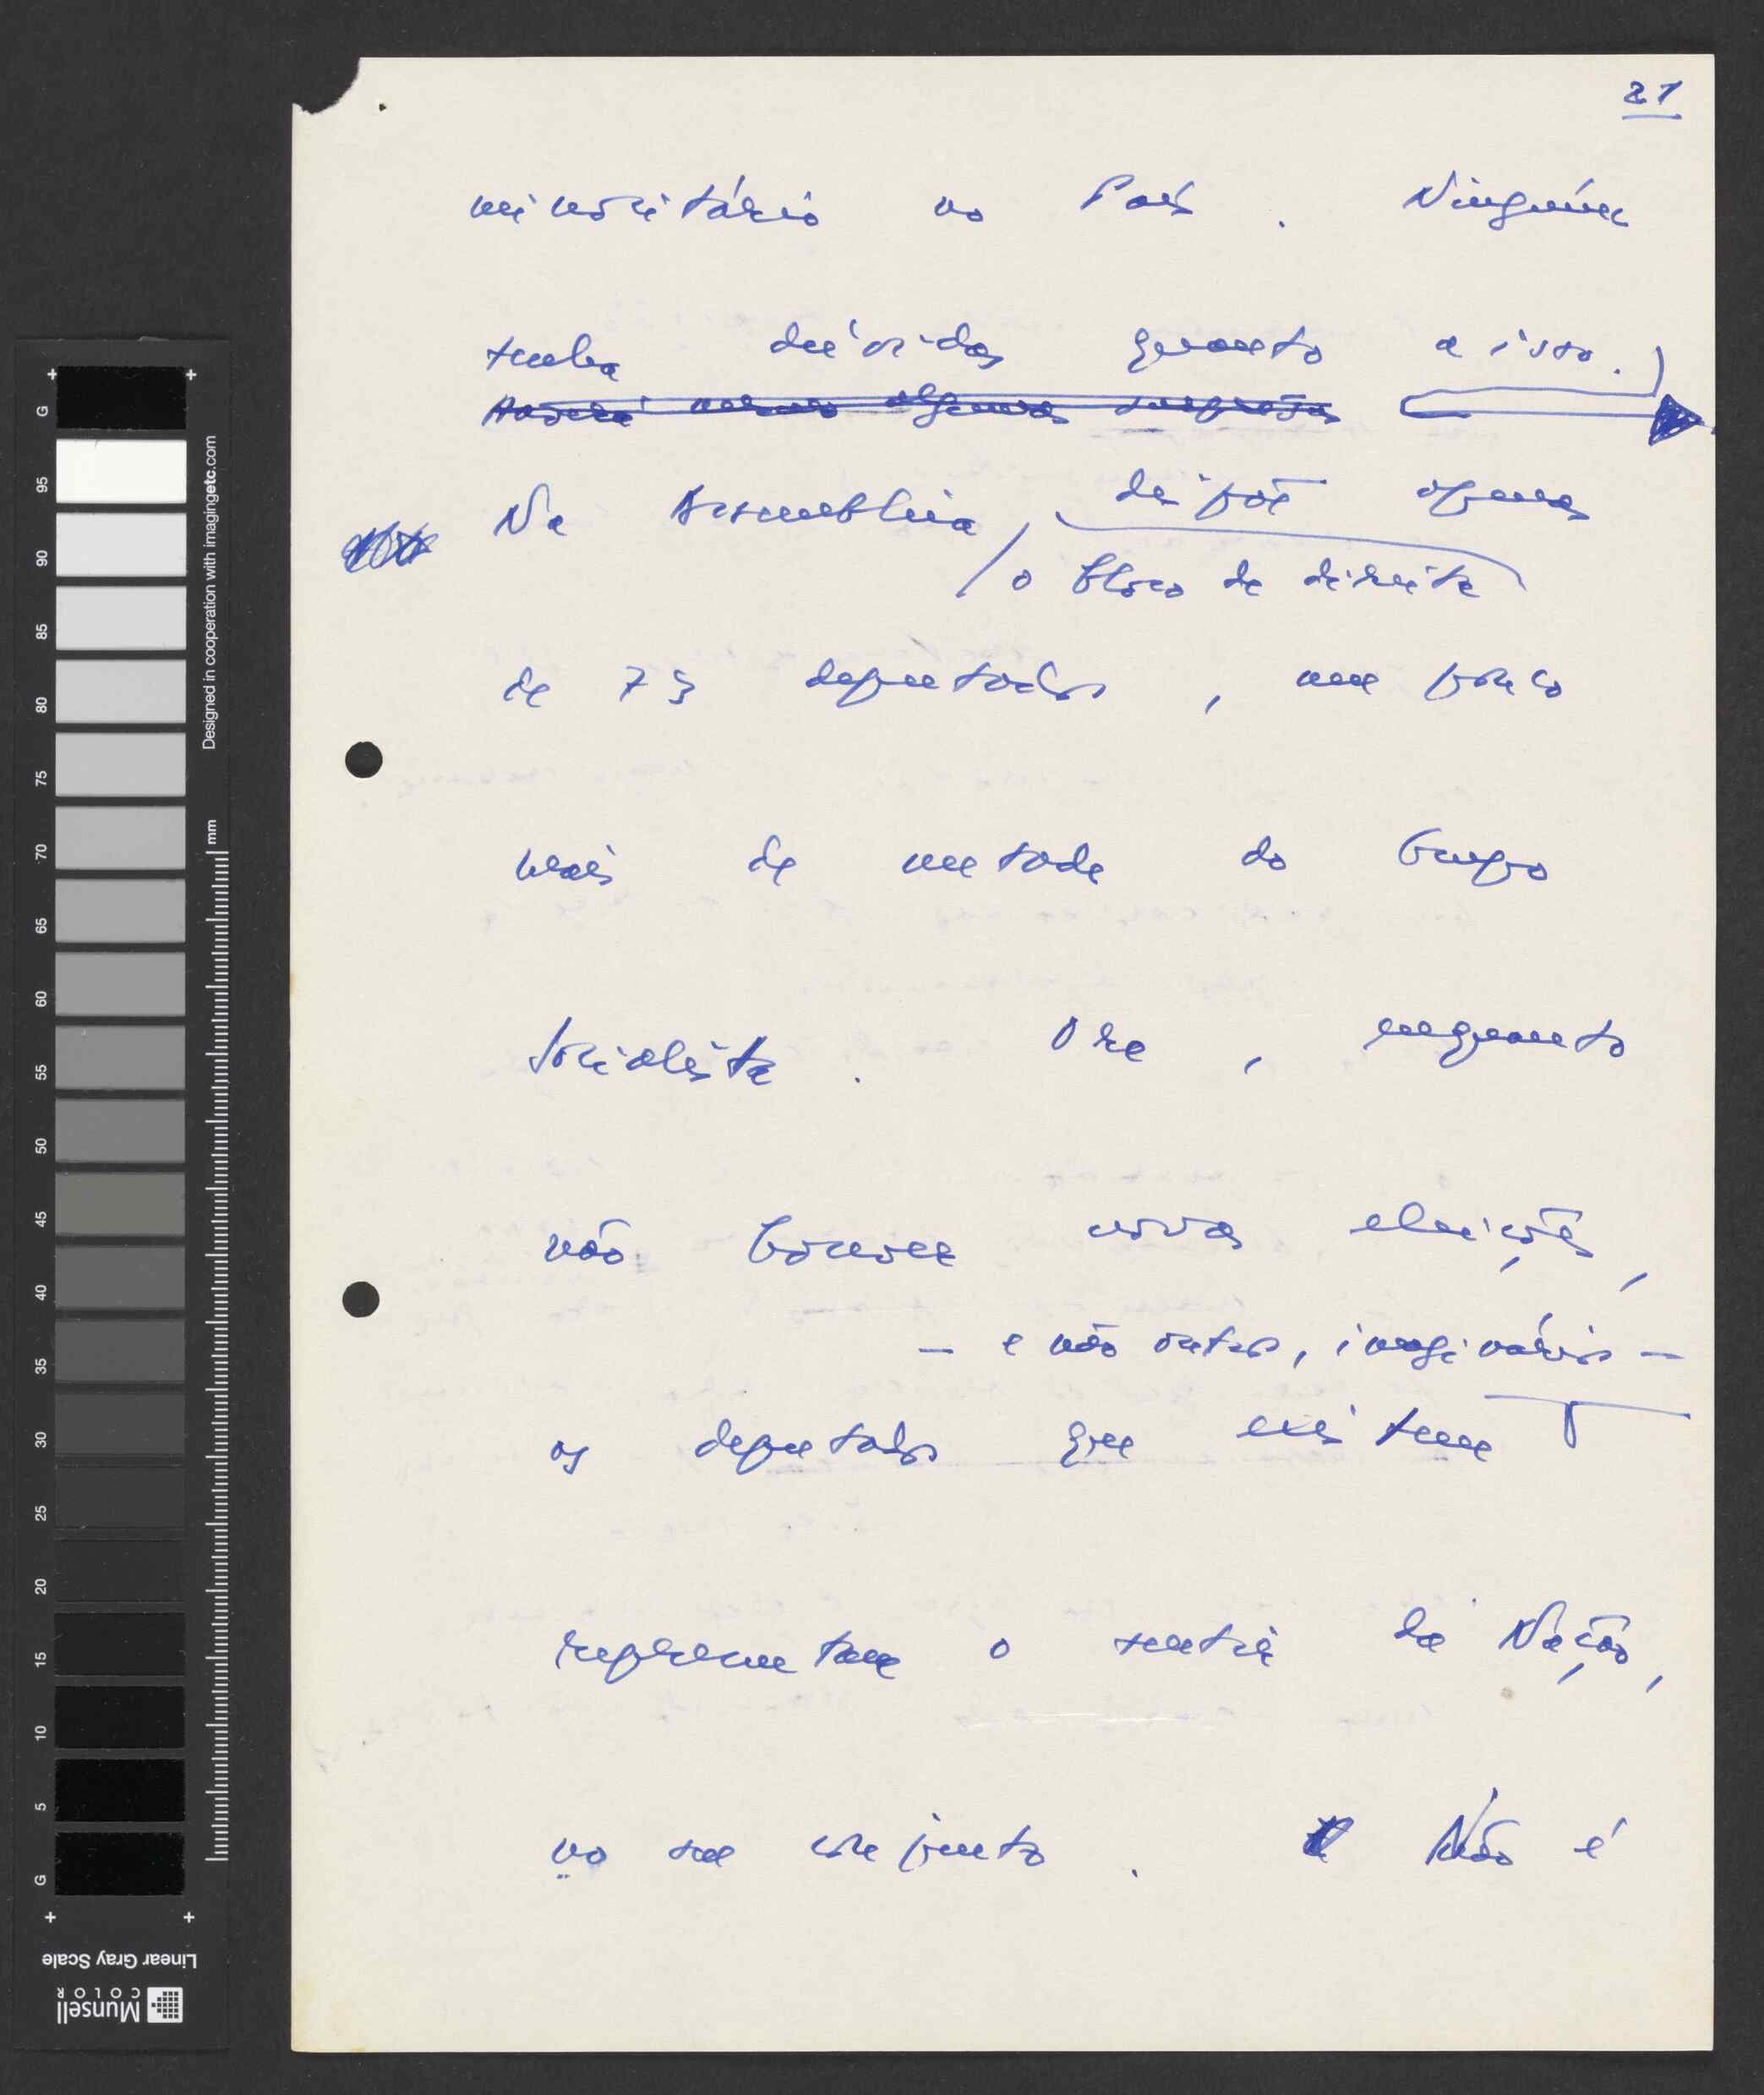 21
minoritário no País. Ninguém
tenha dúvidas quanto a isso.
Haverá algumas surpresas
Na Assembleia, dispõe apenas
o bloco de direita
de 73 deputados, um pouco
mais de metade do Grupo
Socialista. Ora, enquanto
não houver novas eleições,
— e não outros, imaginários —
os deputados que existem
representam o sentir da Nação,
no seu conjunto. Não é
G
95
90
85
80
75
70
65
60
55
50
45
40
35
30
25
20
15
10
5
G
Designed in cooperation with imagingetc.com
mm
Linear Gray Scale
Munsell
COLOR